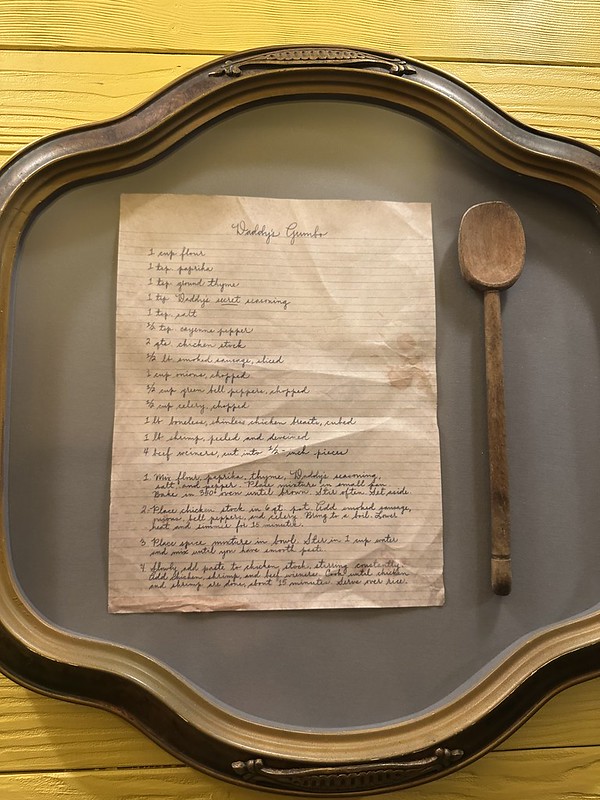 Daddy's Gumbo
1 cup flour
1 tsp paprika
1 tsp ground thyme
1 tsp Daddy's secret seasoning
1 tsp salt
1/2 tsp cayenne pepper
2 qts chicken stock
1/2 lb smoked sausage, sliced
1 cup onions, chopped
1/2 cup green bell peppers, chopped
1/2 cup celery, chopped
1 lb boneless, skinless chicken breasts, cubed
1 lb shrimp, peeled and deveined
4 beef weiners, cut into 1/2-inch pieces
1. Mix flour, paprika, thyme, Daddy's seasoning,
salt and pepper. Place mixture in small pan.
Bake in 350° oven until brown. Stir often. Set aside.
2. Place chicken stock in 6 qt. pot. Add smoked sausage,
onions, bell peppers, and celery. Bring to a boil. Lower
heat and simmer for 15 minutes.
3. Place spice mixture in bowl. Stir in 1 cup water
and mix until you have smooth paste.
4. Slowly add paste to chicken stock, stirring constantly.
Add chicken, shrimp and beef weiners. Cook until chicken
and shrimp are done, about 15 minutes. Serve over rice.